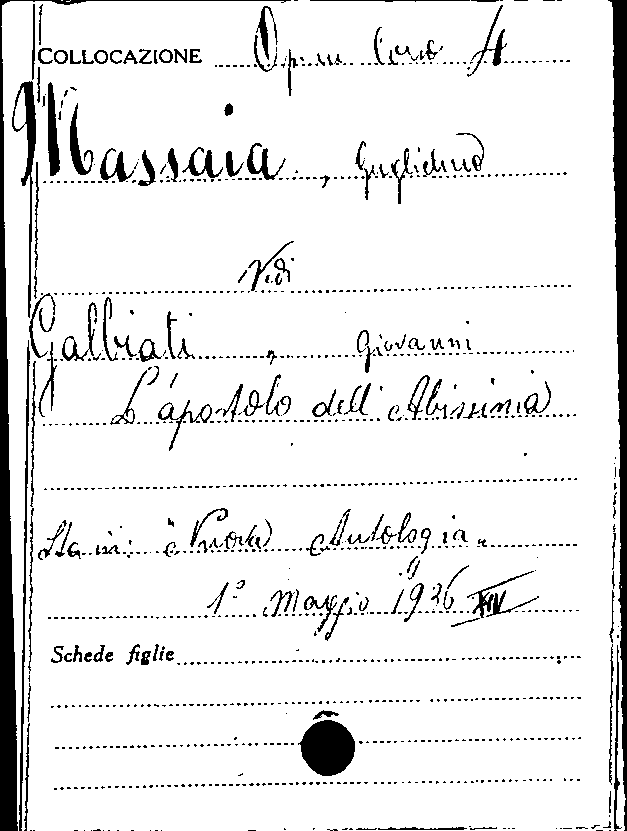 COLLOCAZIONE Op. in Coro H
Massaia, Guglielmo
Vedi
Galbiati, Giovanni
L'apostolo dell'Abissinia
Sta in: "Nuova Antologia"
1º Maggio 1936 XIV
Schede figlie